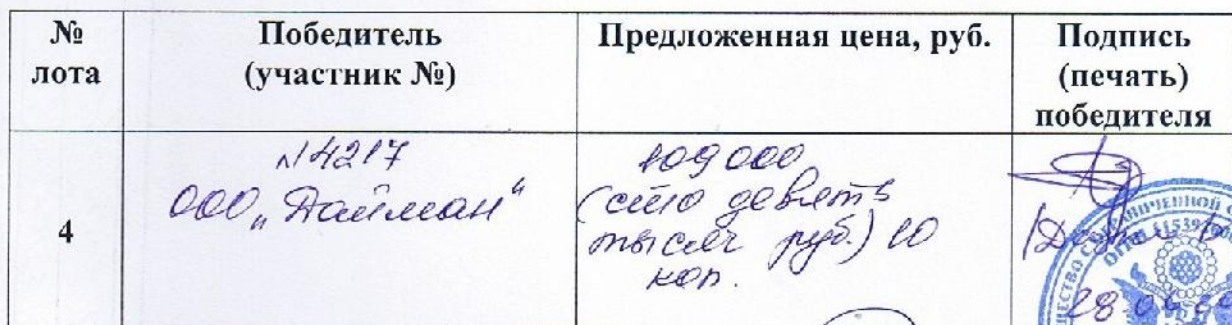 № лота
Победитель (участник №)
Предложенная цена, руб.
Подпись (печать) победителя
4
№4217
ООО „Тайман“
109 000
(сто девять
тысяч руб.) 00
коп.